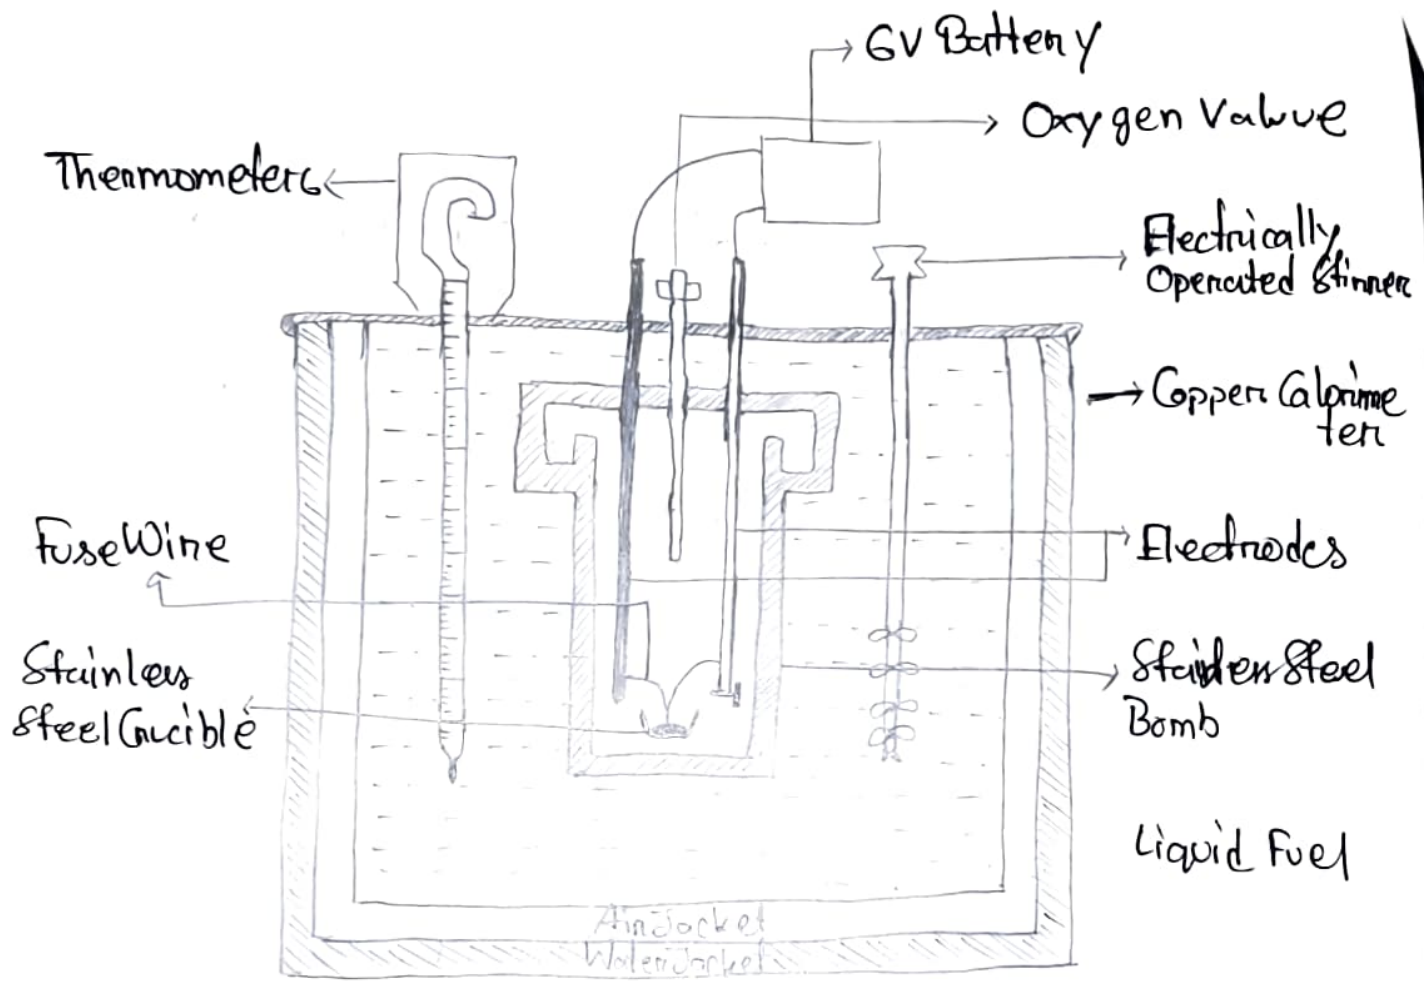 6V Battery
Oxygen Valvue
Thermometers
Electrically
Operated Stirrer
Copper Calorime
ter
Fuse Wire
Electrodes
Stainless
Steel Crucible
Stainless Steel
Bomb
Liquid Fuel
Air Jacket
Water Jacket